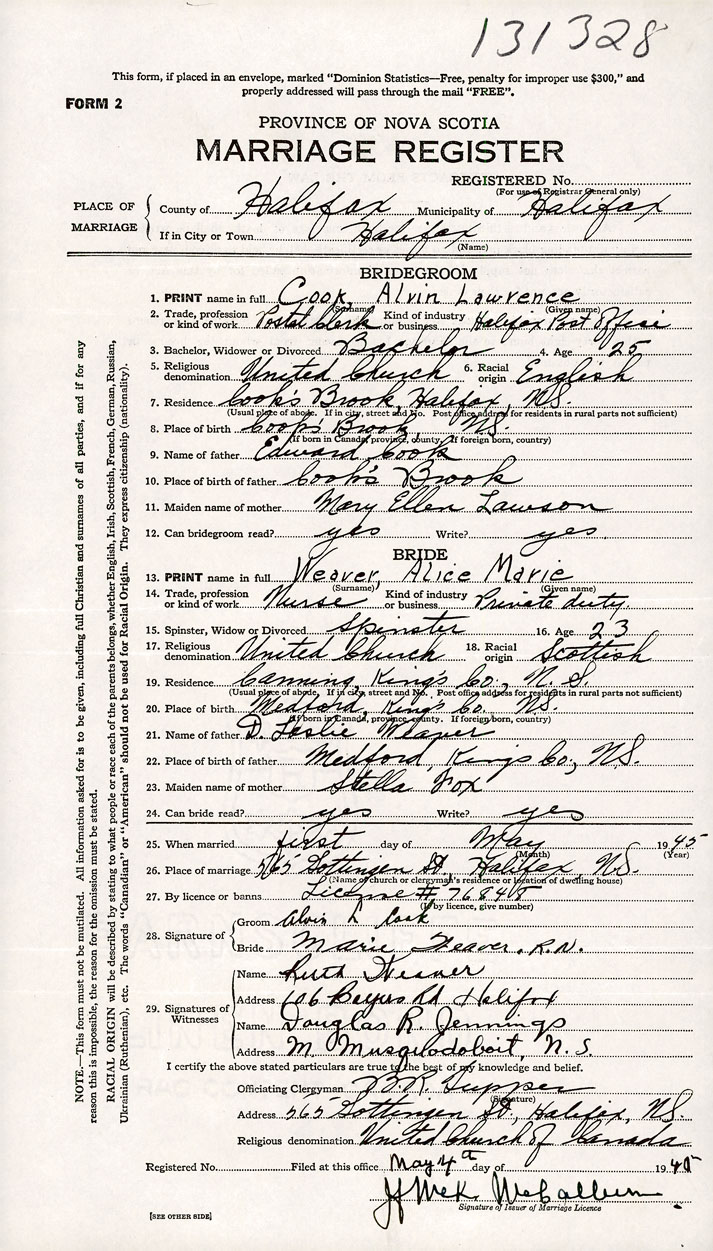 131328
This form, if placed in an envelope, marked "Dominion Statistics—Free, penalty for improper use $300," and
properly addressed will pass through the mail "FREE".
FORM 2
PROVINCE OF NOVA SCOTIA
MARRIAGE REGISTER
REGISTERED No.
(For use of Registrar General only)
PLACE OF MARRIAGE
County of Halifax Municipality of Halifax
If in City or Town Halifax
(Name)
BRIDEGROOM
1. PRINT name in full Cook, Alvin Lawrence
(Surname) (Given name)
2. Trade, profession or kind of work Postal Clerk Kind of industry or business Halifax Post Office
3. Bachelor, Widower or Divorced Bachelor 4. Age 25
5. Religious denomination United Church 6. Racial origin English
7. Residence Cook's Brook, Halifax, N.S.
(Usual place of abode. If in city, street and No. Post office address for residents in rural parts not sufficient)
8. Place of birth Cook's Brook, N.S.
(If born in Canada, province, county. If foreign born, country)
9. Name of father Edward Cook
10. Place of birth of father Cook's Brook
11. Maiden name of mother Mary Ellen Lawson
12. Can bridegroom read? yes Write? yes
BRIDE
13. PRINT name in full Weaver, Alice Marie
(Surname) (Given name)
14. Trade, profession or kind of work Nurse Kind of industry or business Private duty
15. Spinster, Widow or Divorced Spinster 16. Age 23
17. Religious denomination United Church 18. Racial origin Scottish
19. Residence Canning, King's Co., N.S.
(Usual place of abode, If in city, street and No. Post office address for residents in rural parts not sufficient)
20. Place of birth Medford, King's Co. N.S.
(If born in Canada, province, county. If foreign born, country)
21. Name of father D. Leslie Weaver
22. Place of birth of father Medford, King's Co., N.S.
23. Maiden name of mother Stella Fox
24. Can bride read? yes Write? yes
25. When married first day of May 1945
(Month) (Year)
26. Place of marriage 565 Gottingen St., Halifax, N.S.
(Name of church or clergyman's residence or location of dwelling house)
27. By licence or banns License # 76848
(If by licence, give number)
28. Signature of
Groom Alvin L Cook
Bride Marie Weaver, R.N.
29. Signatures of Witnesses
Name Ruth Weaver
Address 606 Bayers Rd Halifax
Name Douglas R. Jennings
Address M. Musquodoboit, N.S.
I certify the above stated particulars are true to the best of my knowledge and belief.
Officiating Clergyman Tupper
(Signature)
Address 565 Gottingen St., Halifax, N.S.
Religious denomination United Church of Canada
Registered No. Filed at this office May 4th day of 1945
McCallum
Signature of Issuer of Marriage Licence
[SEE OTHER SIDE]
NOTE.—This form must not be mutilated. All information asked for is to be given, including full Christian and surnames of all parties, and if for any
reason this is impossible, the reason for the omission must be stated.
RACIAL ORIGIN will be described by stating to what people or race each of the parents belongs, whether English, Irish, Scottish, French, German, Russian,
Ukrainian (Ruthenian), etc. The words "Canadian" or "American" should not be used for Racial Origin. They express citizenship (nationality).